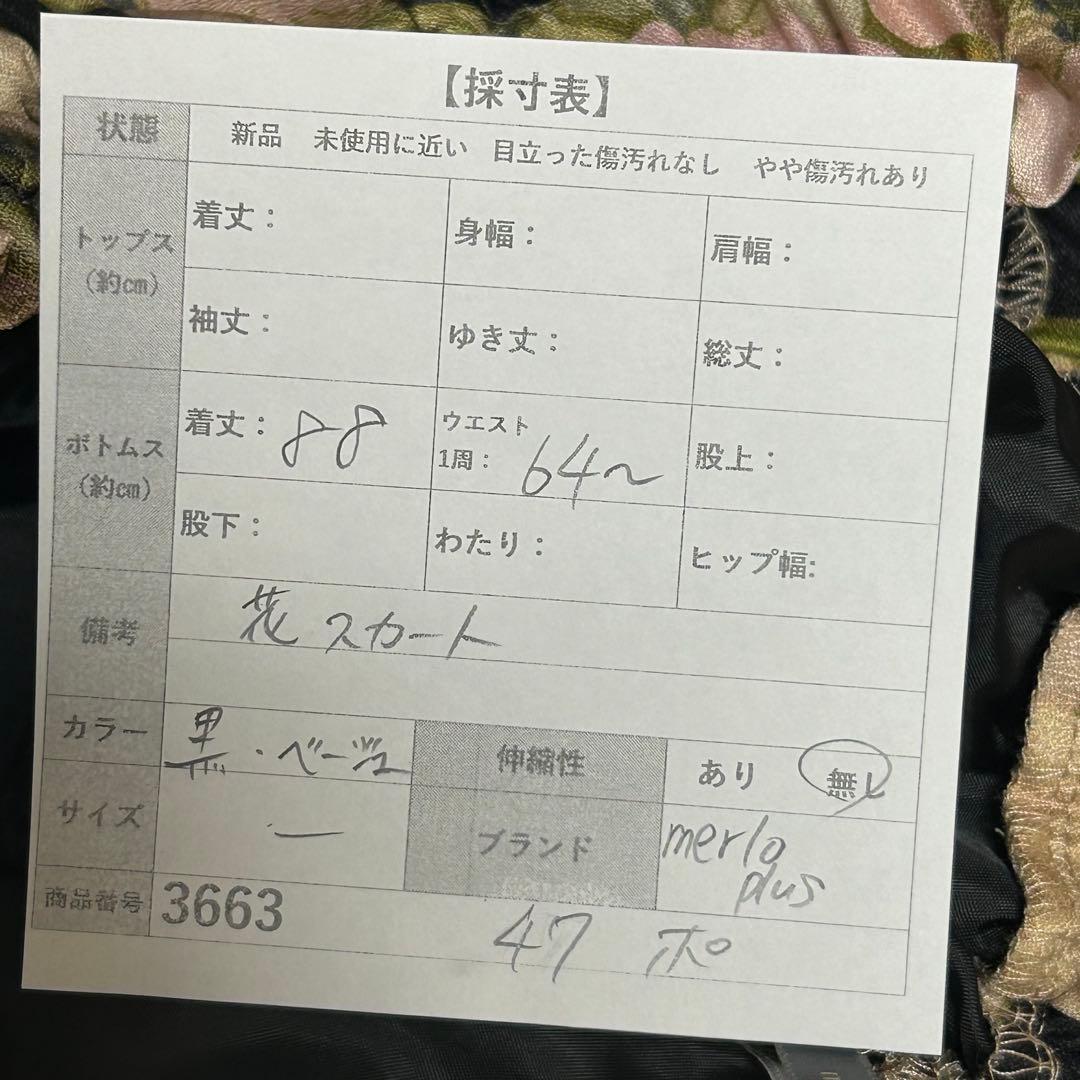 【採寸表】
状態 新品 未使用に近い 目立った傷汚れなし やや傷汚れあり
トップス
(約cm)
着丈： 身幅： 肩幅：
袖丈： ゆき丈： 総丈：
ボトムス
(約cm)
着丈：88 ウエスト
1周：64〜 股上：
股下： わたり： ヒップ幅:
備考 花スカート
カラー 黒・ベージュ 伸縮性 あり 無し
サイズ ー ブランド merlo
plus
商品番号 3663 47 ポ